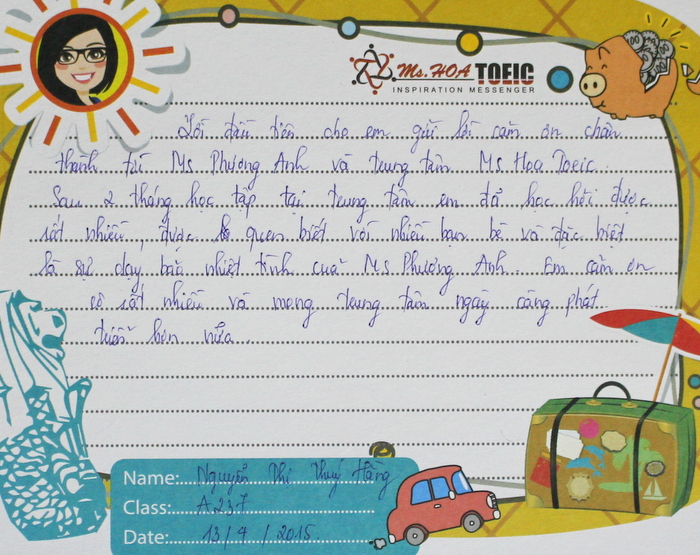 Ms. HOA TOEIC
INSPIRATION MESSENGER
Lời đầu tiên cho em gửi lời cảm ơn chân
thành tới Ms Phương Anh và trung tâm Ms Hoa Toeic.
Sau 2 tháng học tập tại trung tâm em đã học hỏi được
rất nhiều, được quen biết với nhiều bạn bè và đặc biệt
là sự dạy bảo nhiệt tình của Ms Phương Anh. Em cảm ơn
cô rất nhiều và mong trung tâm ngày càng phát
triển hơn nữa.
Name: Nguyễn Thị Thuý Hằng
Class: A237
Date: 13/4/2015